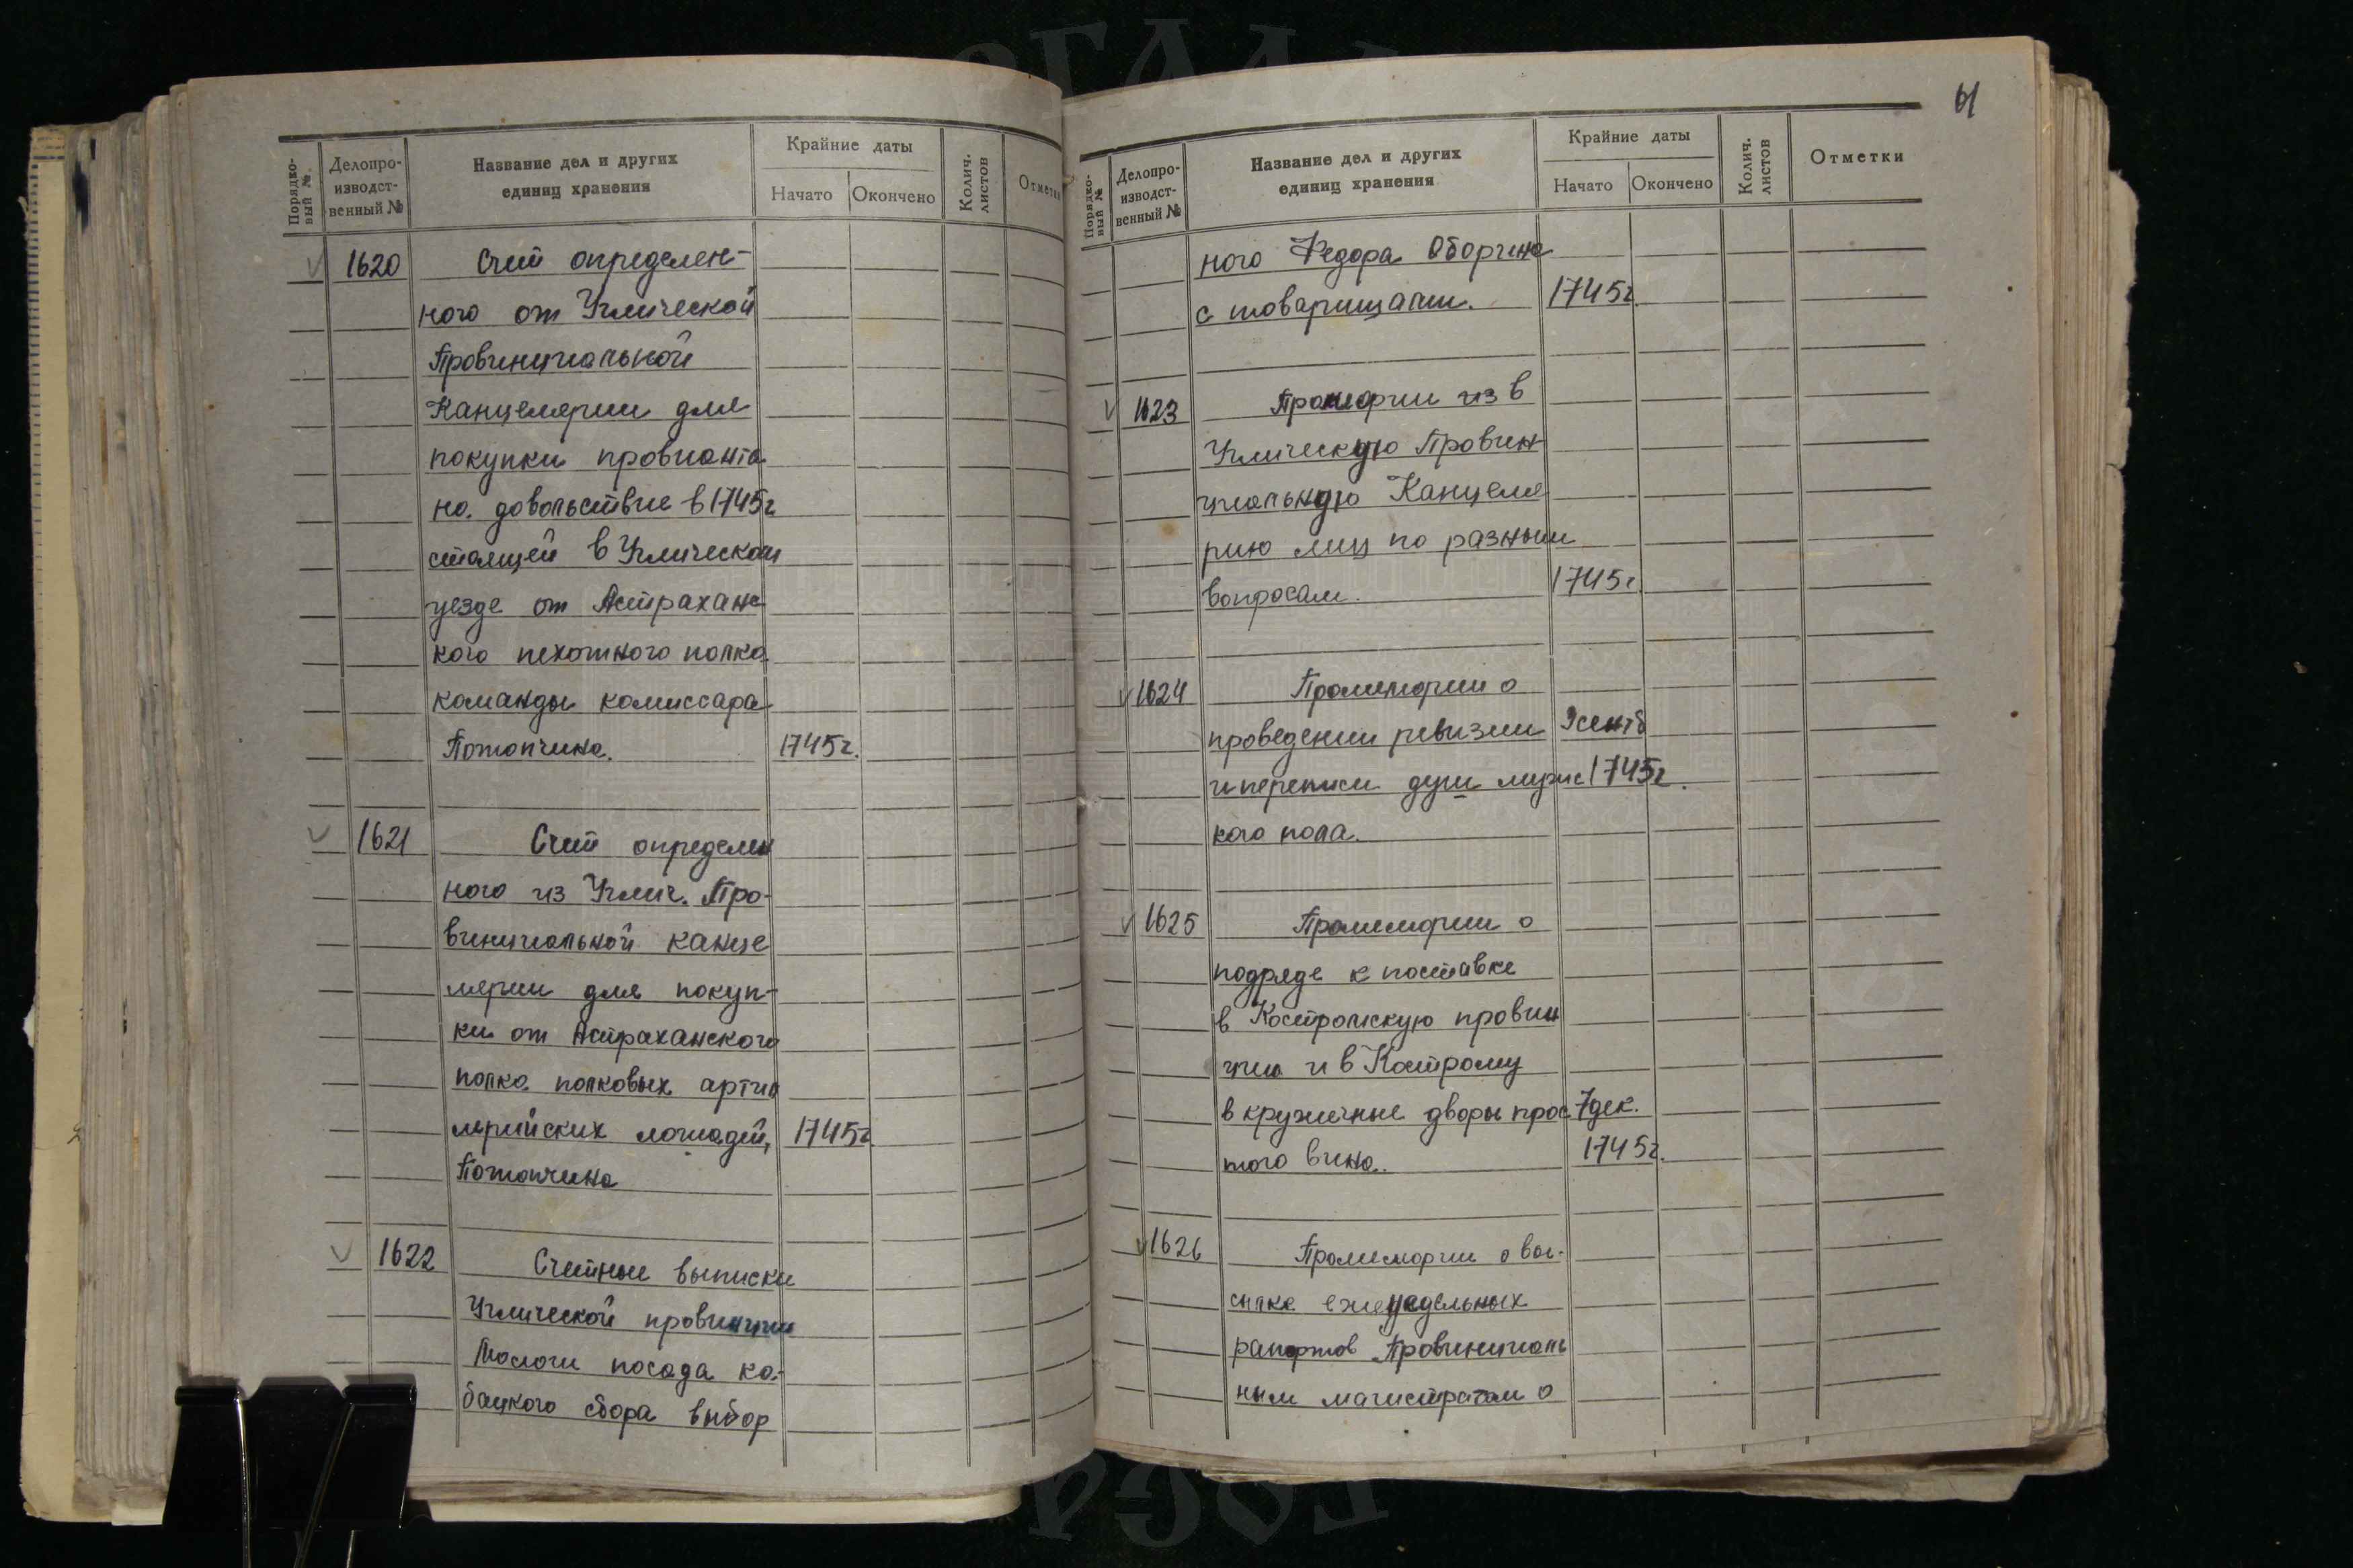 Порядко-
вый №
Делопро-
изводст-
венный №
Название дел и других
единиц хранения
Крайние даты
Начато
Окончено
Колич.
листов
Отметки
1620 Счет определен-
ного от Углической
Провинциальной
Канцелярии для
покупки провианта
на довольствие в 1745г
стоящей в Углическом
уезде от Астраханс
кого пехотного полка
команды комиссара
Потапчина. 1745г.
1621 Счет определен
ного из Углич. Про-
винциальной канце
лярии для покуп-
ки от Астраханского
полка полковых артил
лерийских лошадей, 1745г.
Потапчина
1622 Счетные выписки
Углической провинции
Мологи посада ка-
бацкого сбора выбор
Порядко-
вый №
Делопро-
изводст-
венный №
Название дел и других
единиц хранения
Крайние даты
Начато
Окончено
Колич.
листов
Отметки
ного Федора Оборина
с товарищами. 1745г.
1623 из в
Углическую Провин
циальную Канцеля
рию лиц по разным
вопросам. 1745г.
1624 Промемории о
проведении ревизии 9сентб
и переписи душ мужс 1745г.
кого пола.
1625 Промемории о
подряде к поставке
в Костромскую провин
цию и в Кострому
в кружечные дворы прос 7дек.
того вина. 1745г.
1626 Промемории о вы-
сылке еженедельных
рапортов Провинциаль
ным магистратам о